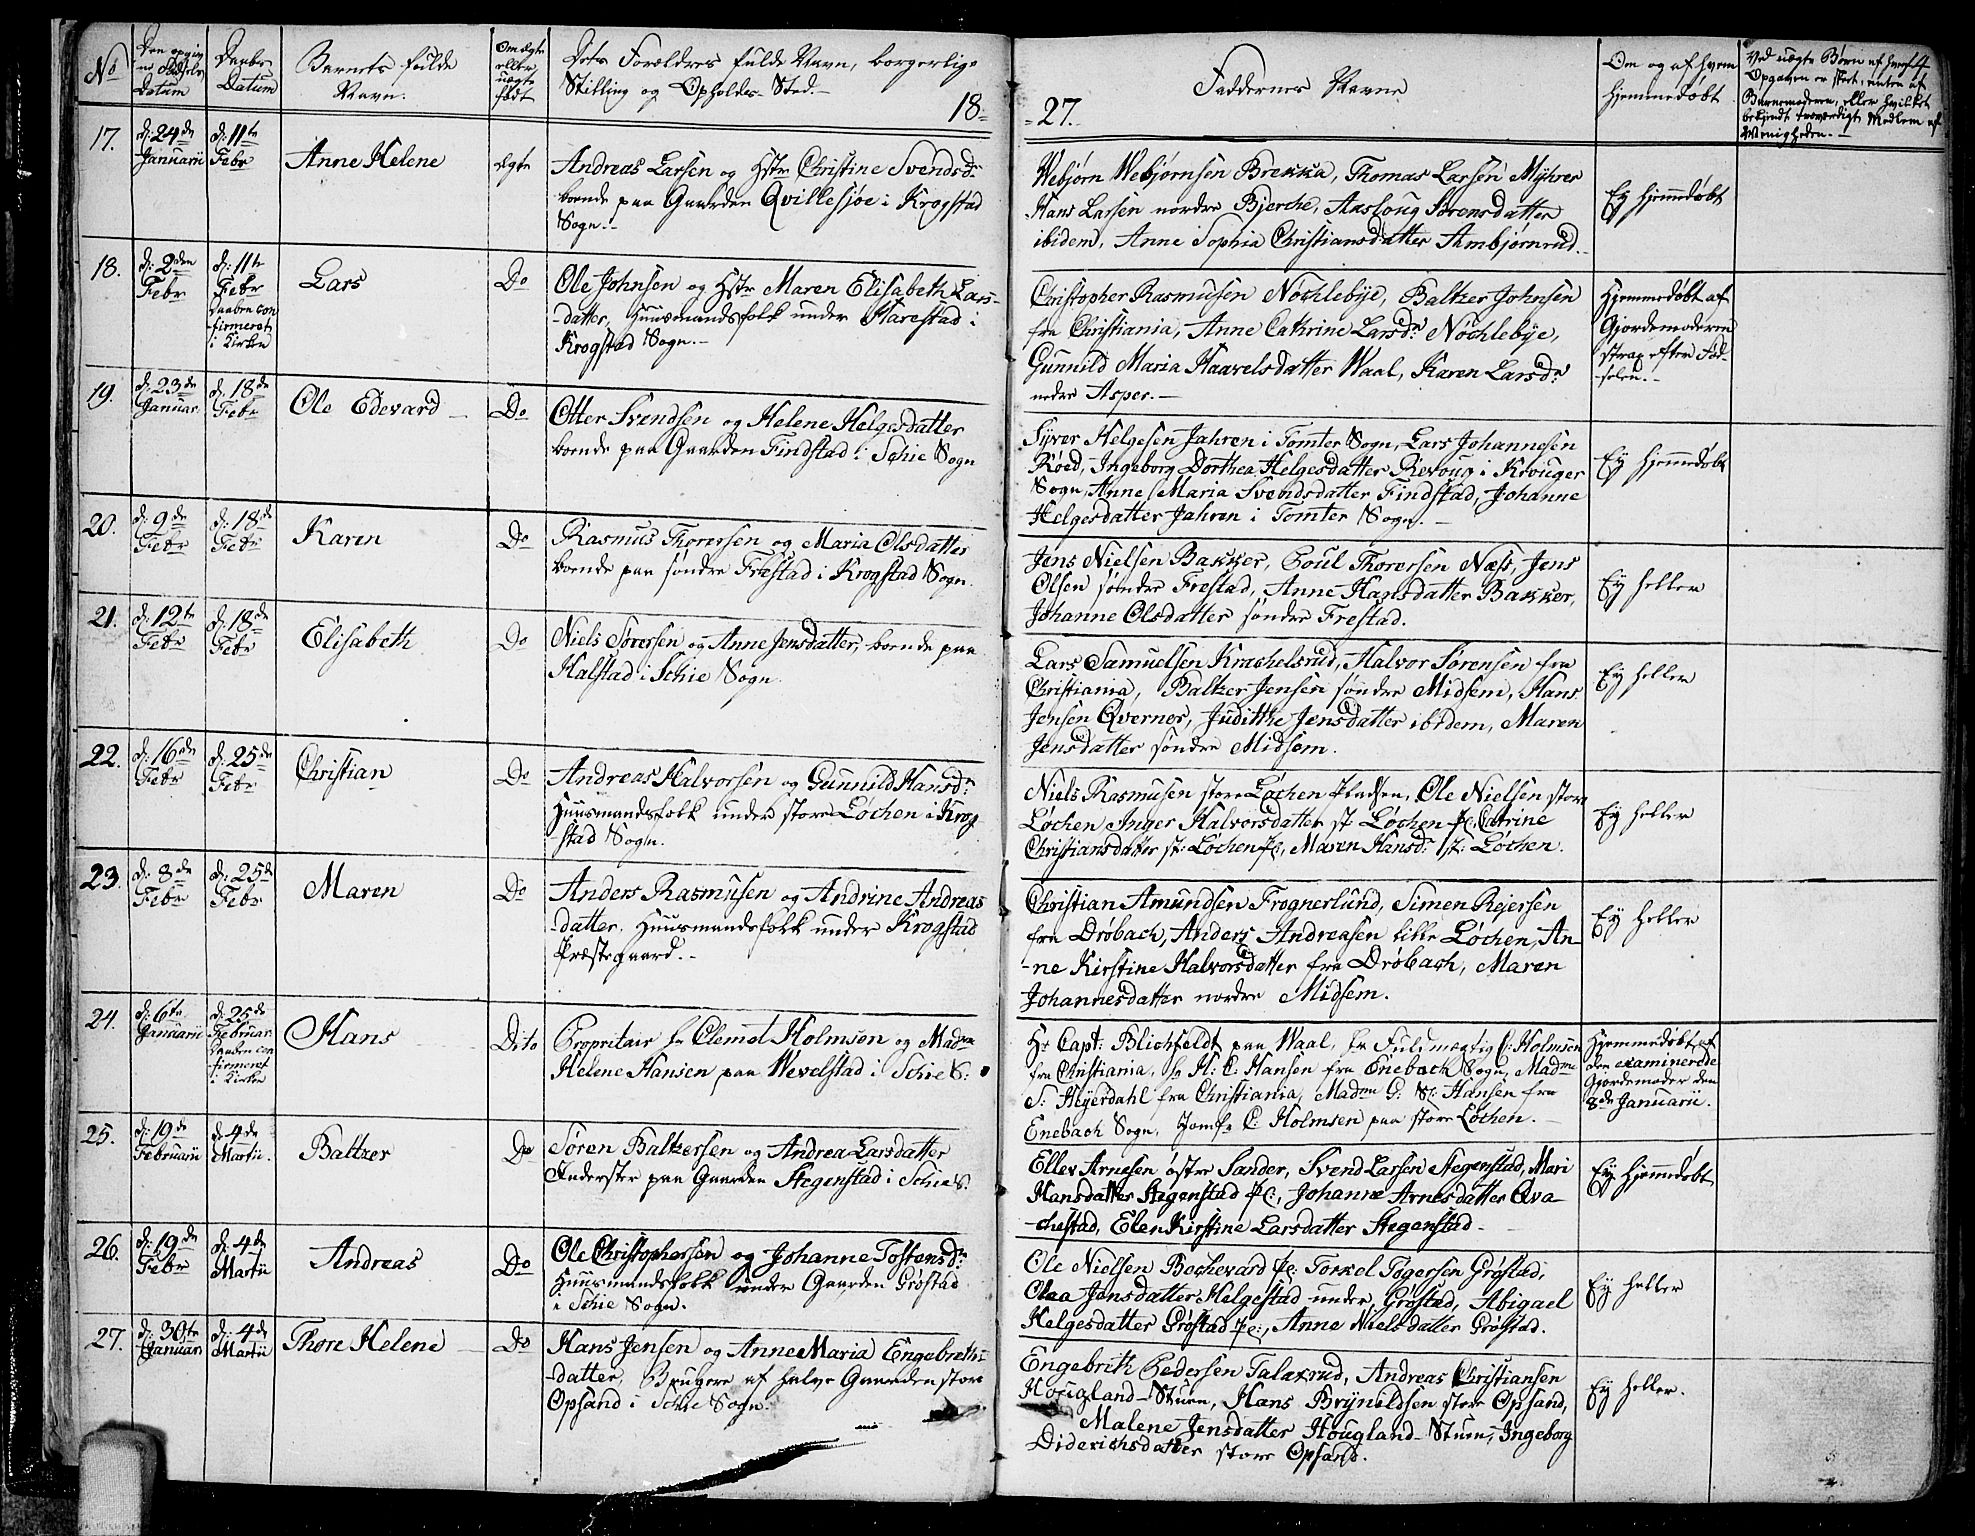 No
Den opgivne Fødsels Datum
Daabs Datum
Barnets fulde Navn.
Om ægte eller uægte født
Dets Forældres fulde Navn, borgerlige Stilling og Opholds-Sted.
18
27.
Faddernes Navne
Om og af hvem hjemmedøbt
Ved uægte Børn af hvem Opgaven er skeet, enten af Barnemoderen, eller hvilket bekjendt troværdigt Medlem af Menigheden.
4
17.
d: 24de Januarii
d: 11te Febr
Anne Helene
ægte
Andreas Larsen og Hstr Christine Svendsd:
boende paa Gaarden Qvillesjøe i Krogstad
Sogn.
Webjørn Webjørnsen Brekka, Thomas Larsen Myhrer
Hans Larsen nordre Bjerche, Aasloug Sørensdatter
ibidem, Anne Sophia Christiansdatter Ambjørnrud.
Ej hjemmedøbt
18.
d: 2den Febr
d: 11te Febr
Daaben confirmeret i Kirken
Lars
Do
Ole Johnsen og Hstr Maren Elisabeth Lars-
-datter, Huusmandsfolk under Harestad i
Krogstad Sogn.
Christopher Rasmusen Nøchlebye, Baltzer Johnsen
fra Christiania, Anne Cathrine Larsdr Nøchlebye,
Gunnild Maria Haavelsdatter Waal, Karen Larsdr
nedre Asper.
Hjemmedøbt af
Gjordemoderen
strax efter Fød-
selen.
19.
d: 23de Januar.
d: 18de Febr
Ole Edevard
Do
Otter Svendsen og Helene Helgesdatter
boende paa Gaarden Findstad i Schie Sogn
Syver Helgesen Jahren i Tomter Sogn, Lars Johannesen
Røed, Ingeborg Dorthea Helgesdatter Revoug i Krouger
Sogn, Anne Maria Svendsdatter Findstad, Johanne
Helgesdatter Jahren i Tomter Sogn.
Ej hjemmedøbt
20.
d: 9de Febr
d: 18de Febr
Karen
Do
Rasmus Thoresen og Maria Olsdatter
boende paa søndre Frestad i Krogstad Sogn.
Jens Nielsen Bakker, Poul Thoresen Næss, Jens
Olsen søndre Frestad, Anne Hansdatter Bakker,
Johanne Olsdatter søndre Frestad.
Ej heller
21.
d: 12te Febr
d: 18de Febr
Elisabeth
Do
Niels Sørensen og Anne Jensdatter, boende paa
Halstad i Schie Sogn
Lars Samuelsen Krachelsrud, Halvor Sørensen fra
Christiania, Baltzer Jensen søndre Midsem, Hans
Jensen Qverner, Judithe Jensdatter ibidem, Maren
Jensdatter søndre Midsem.
Ej heller
22.
d: 16de Febr
d: 25de Febr
Christian
Do
Andreas Halvorsen og Gunnild Hansdr
Huusmandsfolk under store Løchen i Krog
stad Sogn.
Niels Rasmusen store Løchen Pladsen, Ole Nielsen store
Løchen, Inger Halvorsdatter st: Løchen Pl: Catrine
Christiansdatter st: Løchen Pl:, Maren Hansdr st: Løchen.
Ej heller
23.
d: 8de Febr
d: 25de Febr
Maren
Do
Anders Rasmusen og Andrine Andreas
-datter, Huusmandsfolk under Krogstad
Præstegaard.
Christian Amundsen Frognerlund, Simen Rejersen
fra Drøbach, Anders Andreasen lille Løchen, An-
-ne Kirstine Halvorsdatter fra Drøbach, Maren
Johannesdatter nordre Midsem.
Ej heller
24.
d: 6te Januarii
d: 25de Februar.
Daaben confirmeret i Kirken
Hans
Dito
Propritair Hr Clemet Holmsen og Madme
Helene Hansen paa Wevelstad i Schie S.
Hr Capt: Blichfeldt paa Waal, Hr Fuldmægtig C: Holmsen
fra Christiania, Hr H: C: Hansen fra Enebach Sogn, Madme
S: Heyerdahl fra Christiania, Madme G: S: Hansen fra
Enebach Sogn, Jomfr C: Holmsen paa store Løchen.
Hjemmedøbt af
den examinerede
Gjordemoder den
8de Januarii.
25.
d: 19de Februarii
d: 4de Martii.
Baltzer
Do
Søren Baltzersen og Andrea Larsdatter
Inderster paa Gaarden Stegenstad i Schie S.
Ellev Arnesen østre Sander, Svend Larsen Stegenstad, Mari
Hansdatter Stegenstad Pl:, Johanne Arnesdatter Qva-
-chestad, Elen Kirstine Larsdatter Stegenstad
Ej hjemmedøbt
26.
d: 19de Febr
d: 4de Martii
Andreas
Do
Ole Christophersen og Johanne Tostensdr
Huusmandsfolk under Gaarden Grøstad
i Schie Sogn.
Ole Nielsen Bochevard Pl: Torkel Tøgersen Grøstad,
Olea Jensdatter Helgestad under Grøstad, Abigael
Helgesdatter Grøstad Pl:, Anne Nielsdatter Grøstad.
Ej heller
27.
d: 30te Januar
d: 4de Martii
Thore Helene
Do
Hans Jensen og Anne Maria Engebreths
-datter, Brugere af halve Gaarden store
Opsand i Schie Sogn.
Engebrith Pedersen Talaxrud, Andreas Christiansen
Hougland-Stuen, Hans Brynildsen store Opsand,
Malene Jensdatter Hougland-Stuen, Ingeborg
Diderichsdatter store Opsand.
Ej heller.